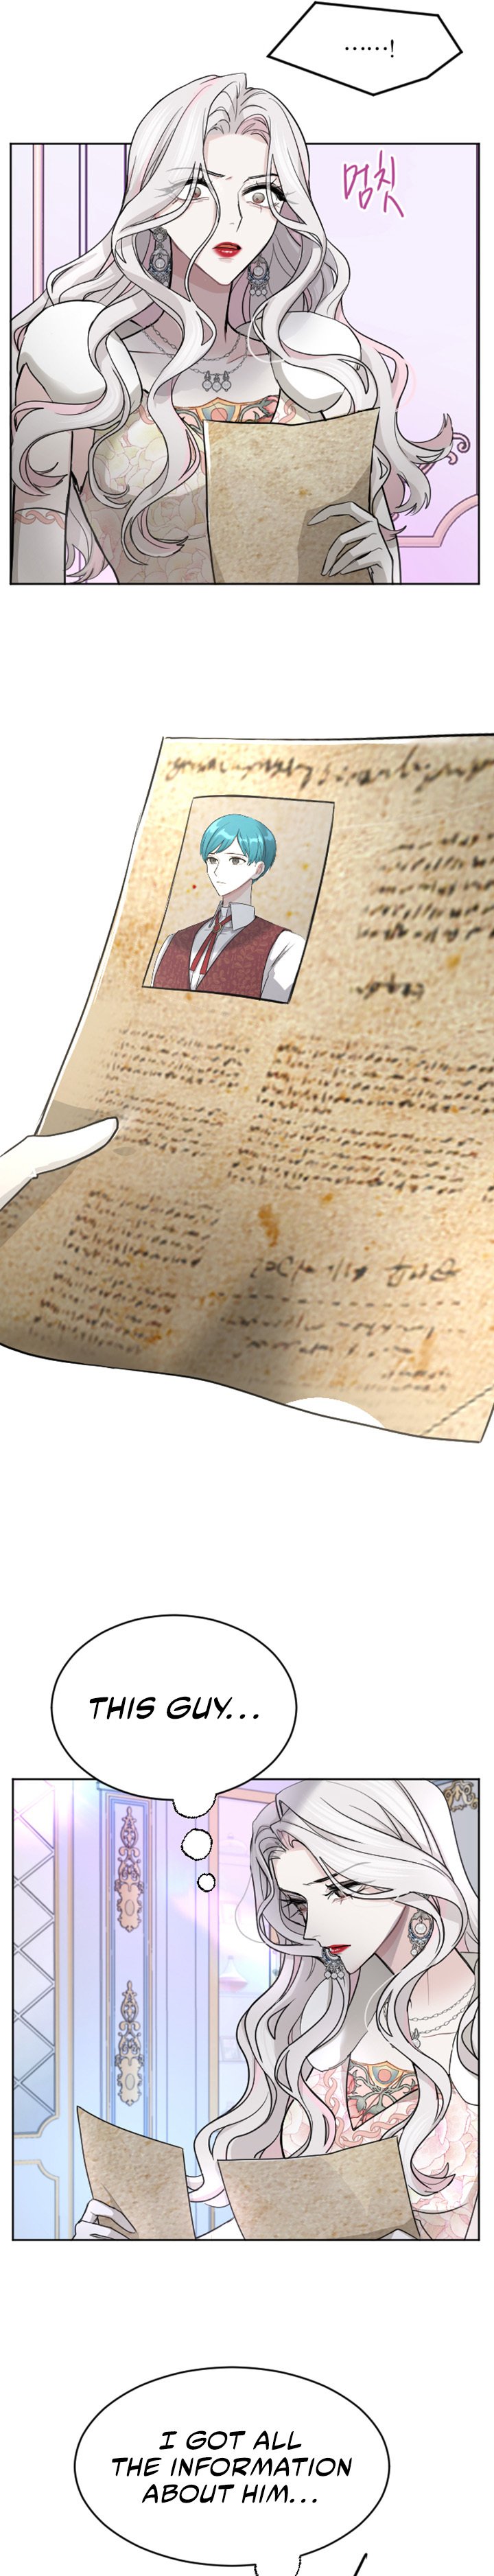 ……!
멈칫
THIS GUY...
I GOT ALL
THE INFORMATION
ABOUT HIM...